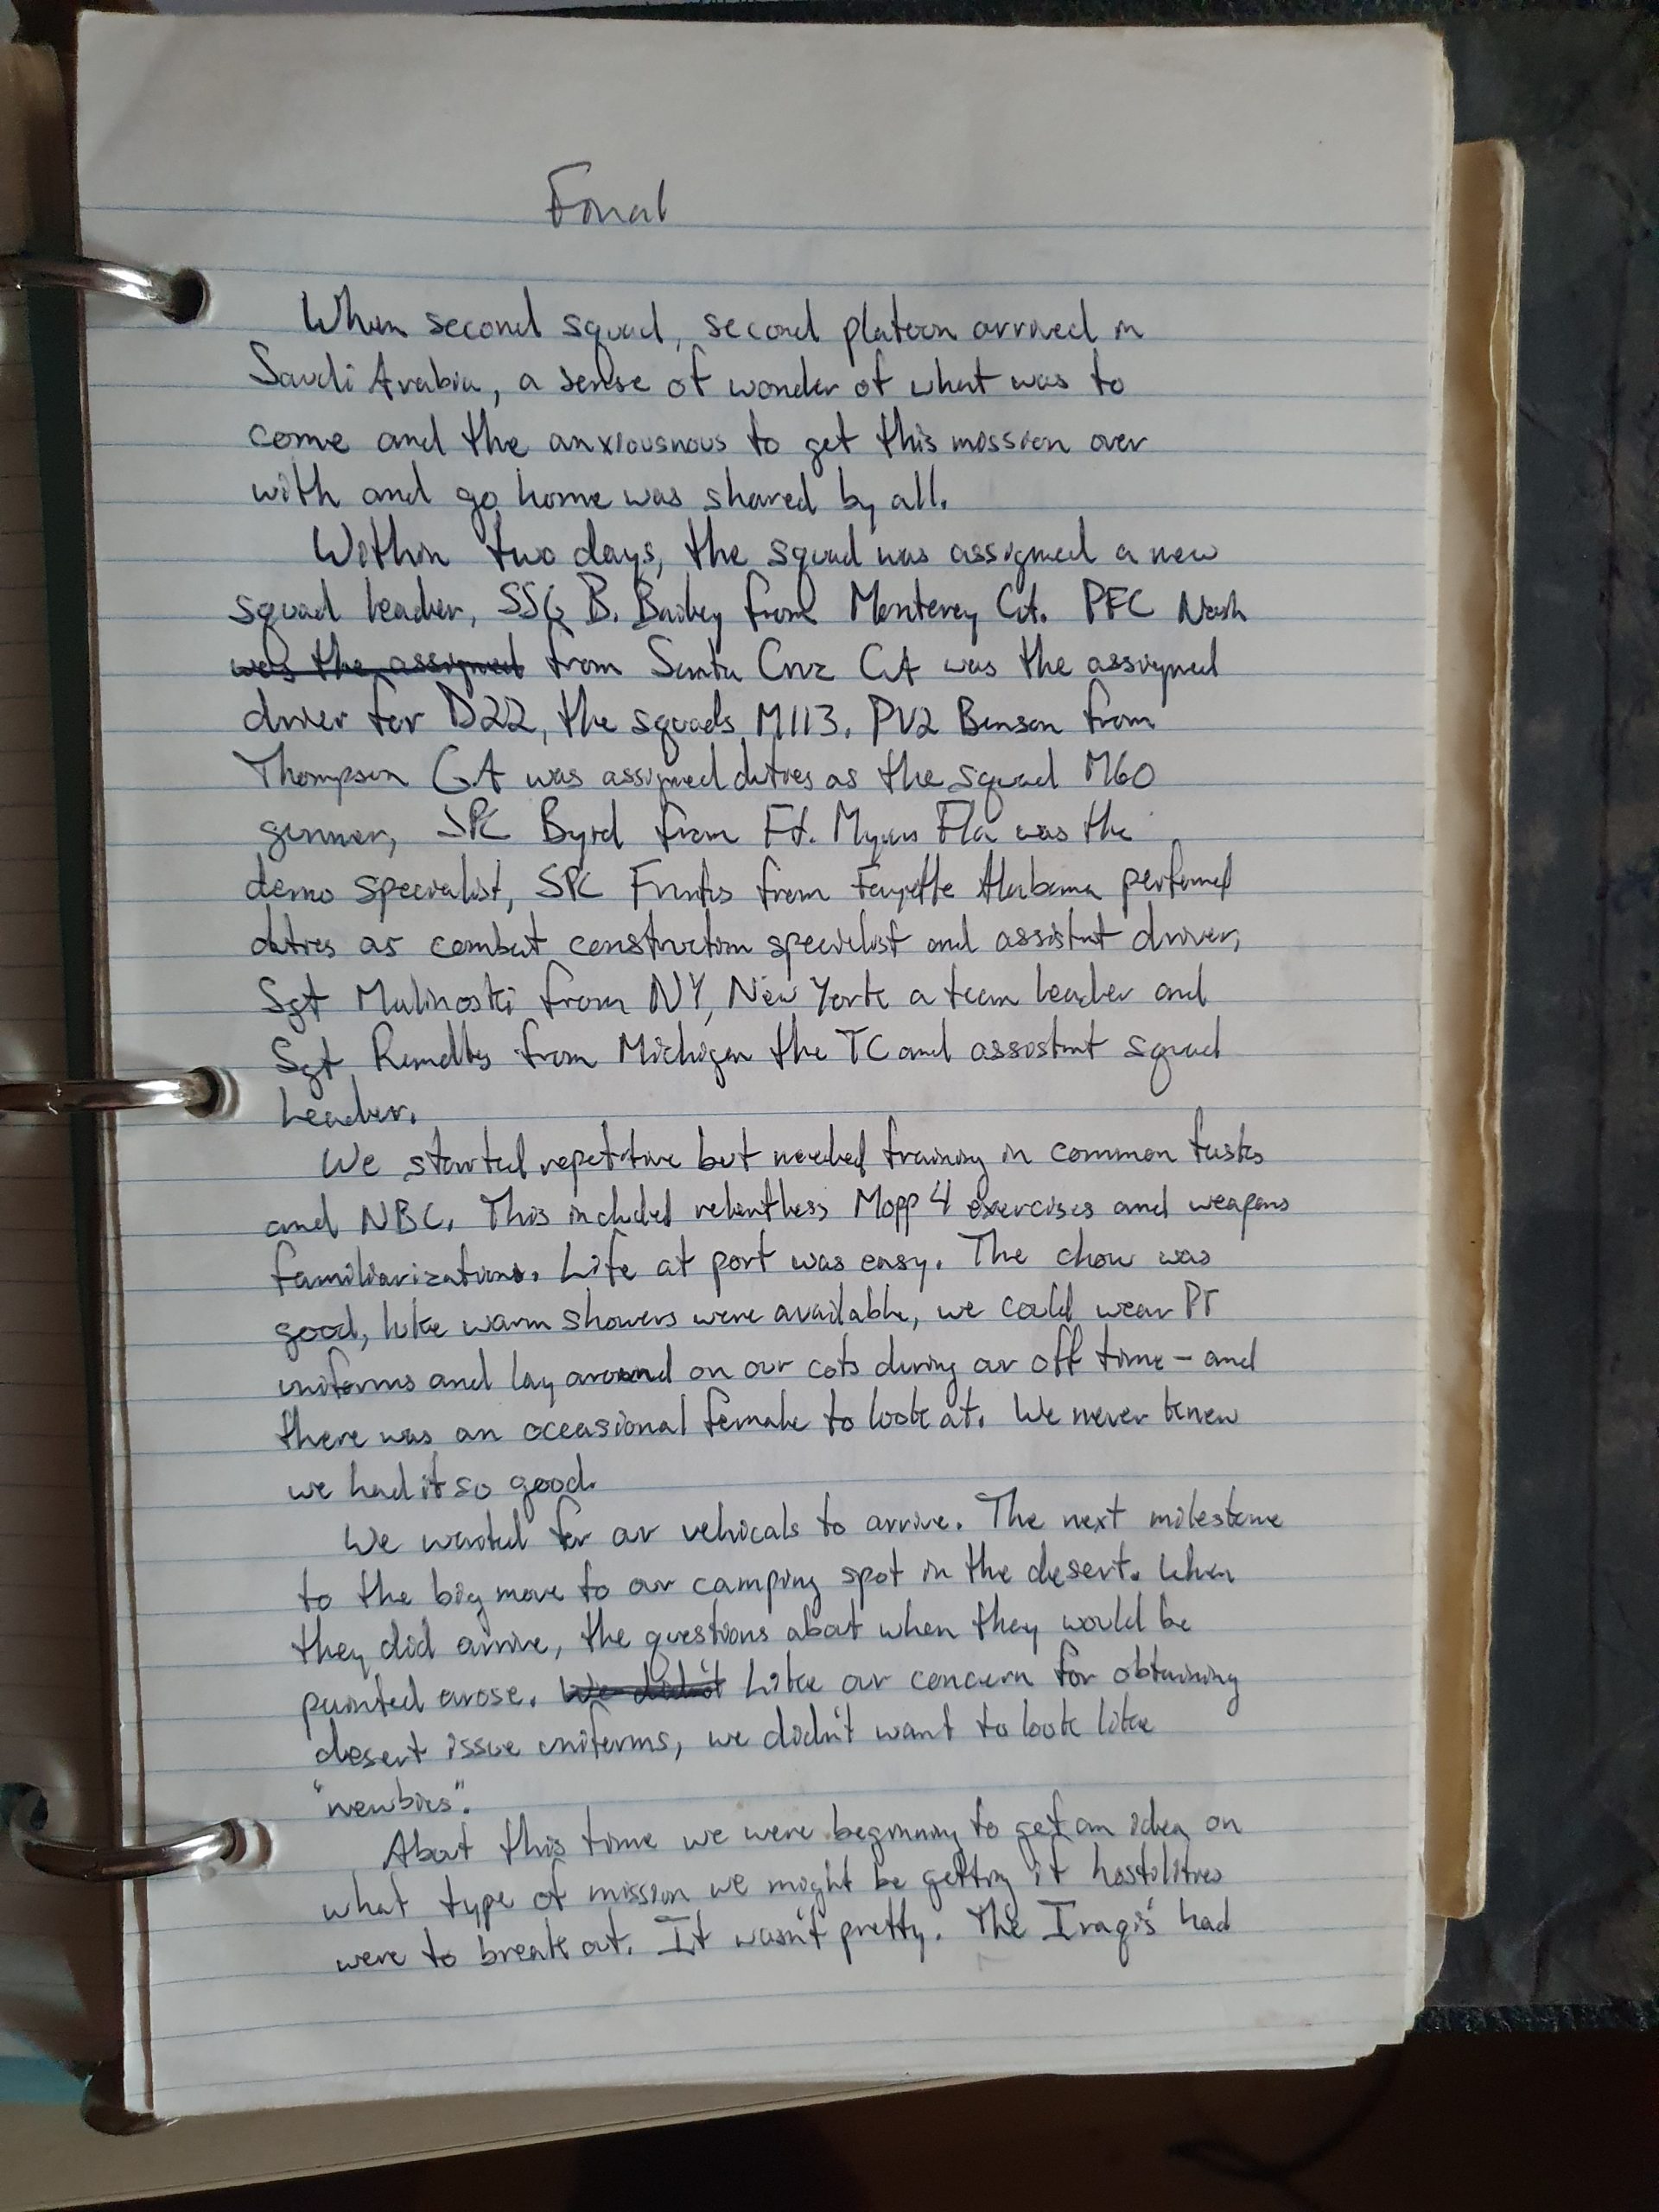 Final
When second squad, second platoon arrived in
Saudi Arabia, a sense of wonder of what was to
come and the anxiousnous to get this mission over
with and go home was shared by all.
Within two days, the squad was assigned a new
squad leader, SSG B. Bailey from Monterey CA. PFC Nash
was the assigned from Santa Cruz CA was the assigned
driver for D22, the squads M113. PV2 Benson from
Thompson GA was assigned duties as the squad M60
gunner, SPC Byrd from Ft. Myers Fla was the
demo specialist, SPC from Fayette Alabama performed
duties as combat construction specialist and assistant driver,
Sgt Malinoski from NY, New York a team leader and
Sgt from Michigan the TC and assistant squad
leader.
We started repetitive but needed training in common tasks
and NBC. This included relentless Mopp 4 exercises and weapons
familiarizations. Life at port was easy. The chow was
good, luke warm showers were available, we could wear PT
uniforms and lay around on our cots during our off time - and
there was an occasional female to look at. We never knew
we had it so good.
We waited for our vehicals to arrive. The next milestone
to the big move to our camping spot in the desert. When
they did arrive, the questions about when they would be
painted arose. We didn't Like our concern for obtaining
desert issue uniforms, we didn't want to look like
"newbies".
About this time we were beginning to get an idea on
what type of mission we might be getting if hostilities
were to break out. It wasn't pretty. The Iraqi's had